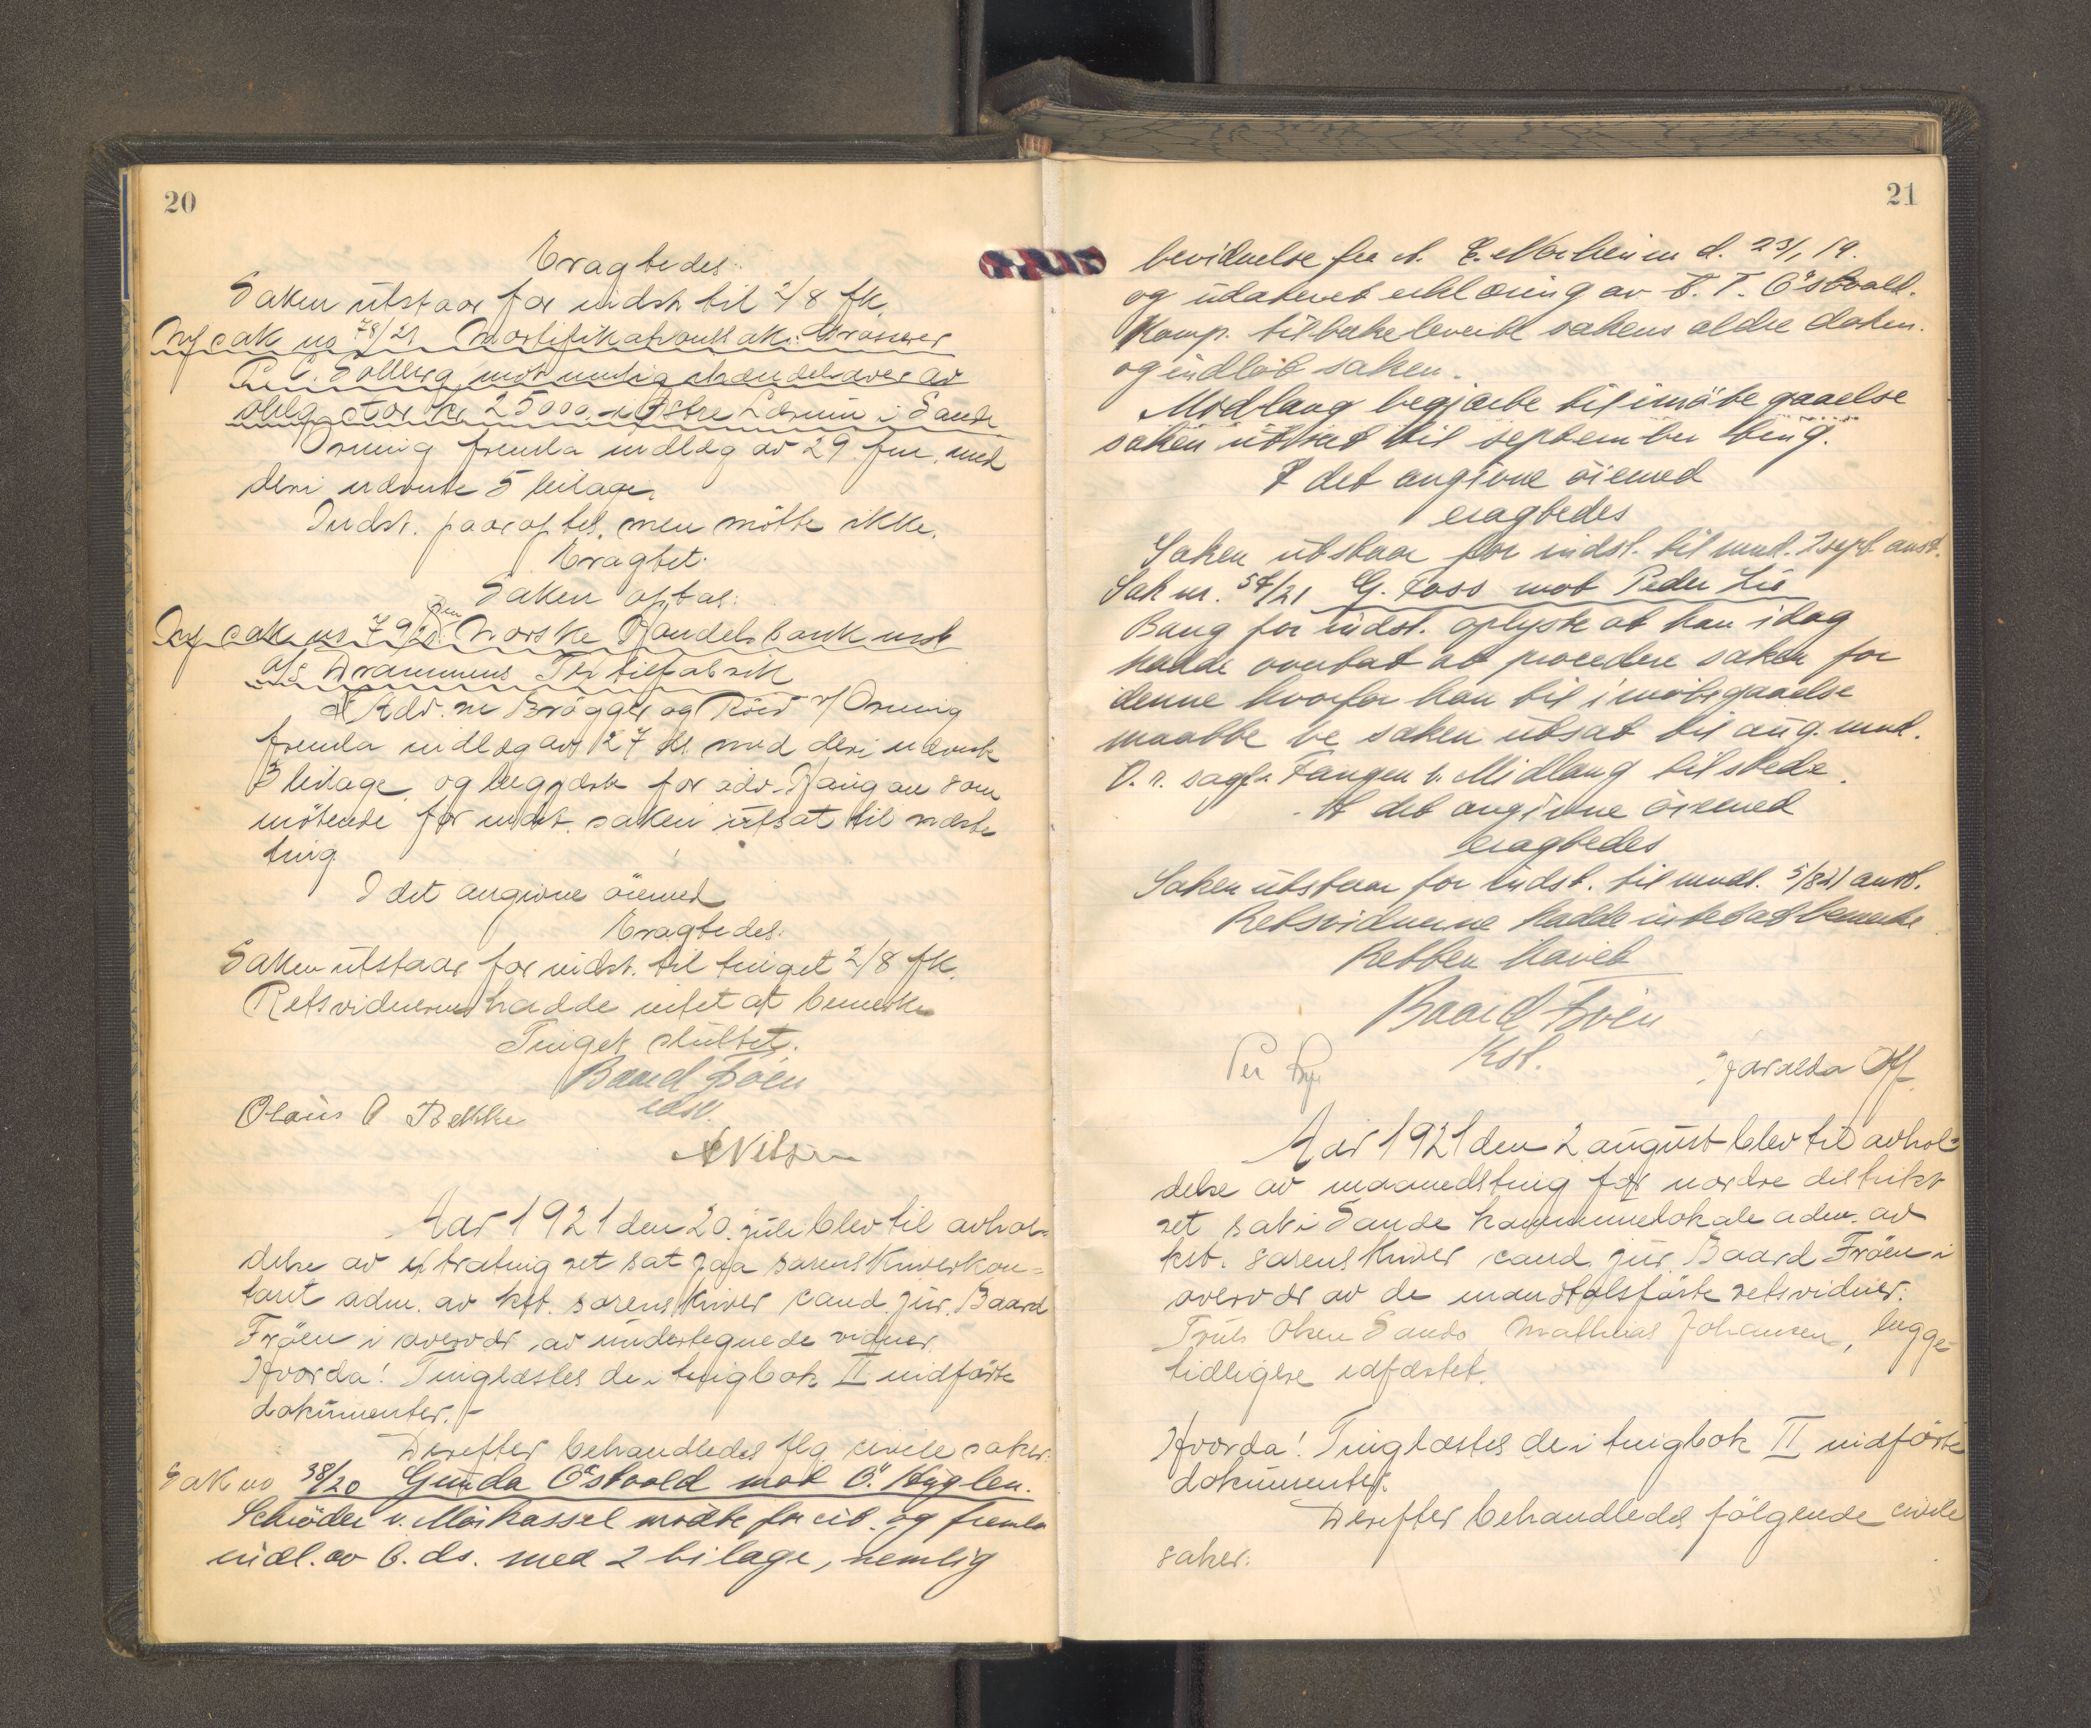 20
Eragtedes:
Saken utstaar for indst. til 2/8 fk.
Ny sak no 78/21 Mortifikationssak: Grosserer
P. C. Solberg mot mulig ihændehaver av
oblig. stor kr 25000 i Østre Lærum i Sande
Orning fremla indlæg av 29. f.m. med
deri nævnte 5 bilage.
Indst. paaropt., men mötte ikke.
Eragtet:
Saken optas:
Ny sak no 79/21 Den Norske Handelsbank mot
a/s Drammens Textilfabrik
Adv.ne Brögger og v/ Orning
fremla indlæg av 27 ds med deri nævnte
3 bilage og begjærte for adv. Haugan som
mötende for indst. saken utsat til næste
ting
I det angivne öiemed
Eragtedes:
Saken utstaar for indst. til tinget 2/8 fk.
Retsvidnerne hadde intet at bemerke
Tinget sluttet.
Baard Fröen
edsv.
Olaus O Bekke
A Nilsen
Aar 1921 den 20. juli blev til avhol-
delse av extrating ret sat paa sorenskriverkon-
toret adm. av kst. sorenskriver cand. jur. Baard
Fröen i overvær av undertegnede vidner.
Hvorda! Tinglæstes de i tingbok II indförte
dokumenter.-
Derefter behandledes flg. civile saker:
Sak no 38/20 Gunda Östvold mot Ö. Hyglen.
Schröder v. Mörkassel mödte for cit. og fremla
indl. av b. ds. med 2 bilage, nemlig
21
bevidnelse fra d. 23/1 19.
og udateret erklæring av T. Östvold.
Komp. tilbakeleverte sakens ældre dokum.
og indlot saken.
Midlaug begjærte til imöte gaaelse
saken utsat til september ting.
I det angivne öiemed
eragtedes
Saken utstaar for indst. til mndt. 2 sept. anst.
Sak nr. 54/21 G. Foss mot Peder Lie
Bang for indst. oplyste at han idag
hadde overtat at procedere saken for
denne hvorfor han til imötegaaelse
maatte be saken utsat til aug. mndt.
O.r. sagf. Fangen v. Midlaug tilstede.
I det angivne öiemed
eragtedes
Saken utstaar for indst. til mndt. 5/8 21 anst.
Retsvidnerne hadde intet at bemerke
Retten hævet
Baard Fröen
Kst.
Per Bye
Aar 1921 den 2 august blev til avhol-
delse av maanedsting for nordre distrikt
ret sat i Sande kommunelokale adm. av
kst. sorenskriver cand. jur. Baard Fröen i
overvær av de mandtalsförte retsvidner:
Truls Olsen Sando, Mathias Johansen, begge
tidligere edfæstet.
Hvorda! Tinglæstes de i tingbok II indförte
dokumenter.
Derefter behandledes fölgende civile
saker: